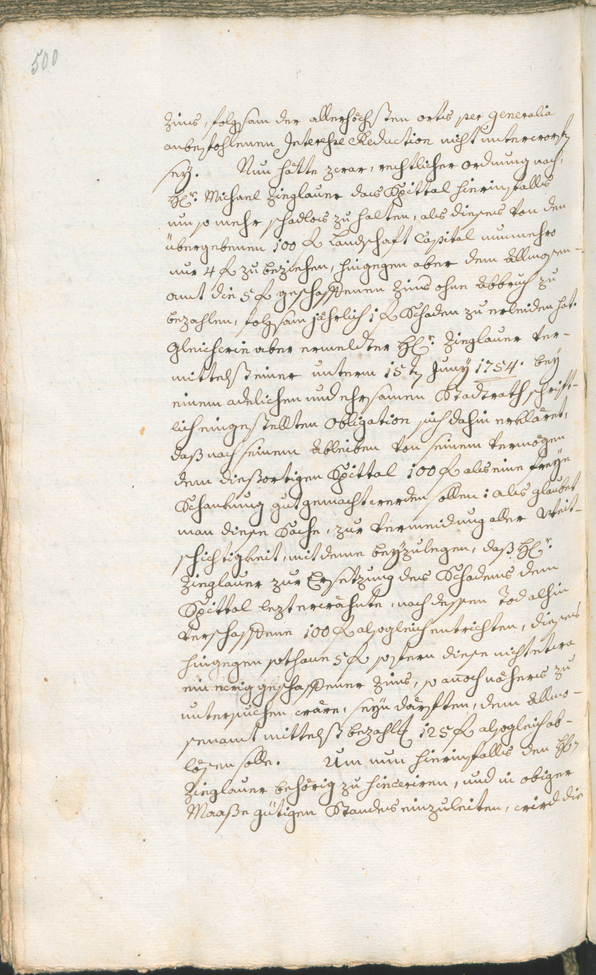 500
Zins, folgsam der allerhöchsten ortes per generalia
anbefohlenen Interesse Reduction nicht unterworfen
seÿ. Nun hätte zwar, rechtlicher ordnung nach,
Hr: Michael Zieglauer das Spittal hierinfalls
um so mehr schadlos zu halten, als dieses von den
übergebenen 100 f Landschaft Capital nunmehro
nur 4 f zu beziehen, hingegen aber dem Allmosen-
amt die 5 f geschaffenen Zins ohne Abbruch zu
bezahlen, folgsam jährlich 1 f Schaden zu erleiden hat.
Gleichwie aber ermeldter Hr: Zieglauer ver-
mittelst einer unterm 15t Junÿ 1754. beÿ
einem adelichen und ehrsamen Stadtrath schrift-
lich eingestellten Obligation sich dahin erkläret,
daß nach seinem Ableiben von seinem Vermögen
dem diesortigen Spittal 100 f als eine freÿe
Schankung gutgemacht werden sollen: als glaubet
man diese Sache, zur Vermeidung aller Weit-
schichtigkeit, mit deme beÿzulegen, daß Hr:
Zieglauer zur Ersetzung des Schadens dem
Spittal lezterwähnte, nach dessen Tod alhin
verschaffene 100 f alsogleich entrichten, dieses
hingegen sothane 5 f, sofern diese nicht etwa
ein ewig geschaffener Zins, so annoch näheris zu
untersuchen wäre, seÿn därften, dem Allmo-
senamt mittelst bezahlt 125 f alsogleich ab-
lösen solle. Um nun hierinfalls den Hr:
Zieglauer behörig zu hinwiren, und in obiger
Maaße gütigen Standes einzuleiten, wird die